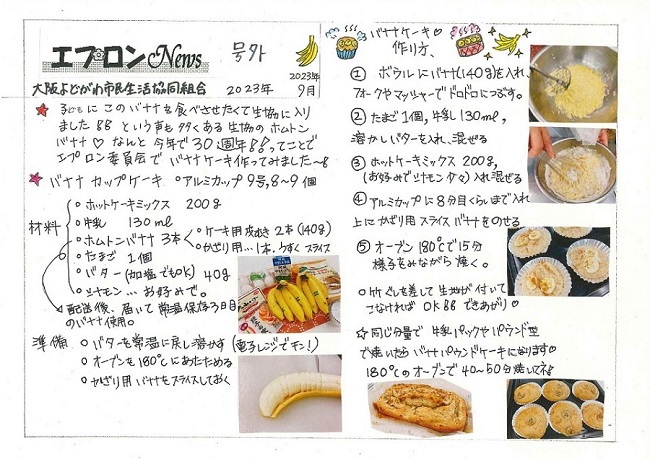 エプロンNews 号外
大阪よどがわ市民生活協同組合 2023年
2023年
9月
★ 子どもにこのバナナを食べさせたくて生協に入り
ました!! という声も多くある生協のホムトン
バナナ♡ なんと今年で30周年!!ってことで
エプロン委員会でバナナケーキ作ってみました〜!!
★ バナナカップケーキ ○アルミカップ9号,8〜9個
材料
○ホットケーキミックス 200g
○牛乳 130ml
○ホムトンバナナ3本
○ケーキ用皮むき2本(140g)
○かざり用…1本.うすくスライス
○たまご 1個
○バター(加塩でもOK) 40g
○シナモン…お好みで。
配送後、届いて常温保存3日目
のバナナ使用。
準備 ○バターを常温に戻し溶かす(電子レンジでチン!)
○オーブンを180℃にあたためる
○かざり用バナナをスライスしておく
バナナケーキ♡
作り方、
① ボウルにバナナ(140g)を入れ、
フォークやマッシャーでドロドロにつぶす。
② たまご1個,牛乳130ml,
溶かしバターを入れ、混ぜる
③ ホットケーキミックス200g,
(お好みでシナモン少々)入れ混ぜる
④ アルミカップに8分目くらいまで入れ
上にかざり用スライスバナナをのせる
⑤ オーブン180℃で15分
様子をみながら焼く。
○竹ぐしを差して生地が付いて
こなければOK!!できあがり♡
☆同じ分量で牛乳パックやパウンド型
で焼いたらバナナパウンドケーキになります♡
180℃のオーブンで40〜50分焼いてネ♪